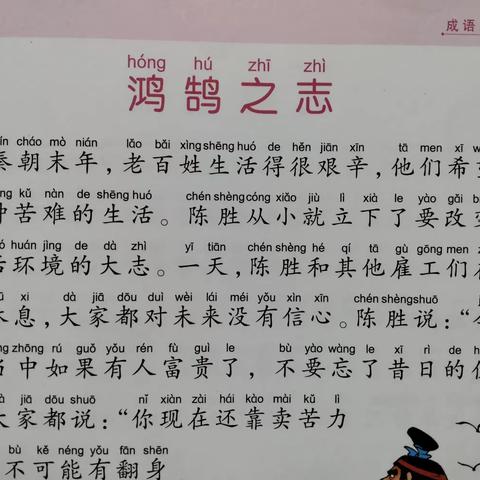 成语
hóng hú zhī zhì
鸿鹄之志
cháo mò nián lǎo bǎi xìng shēng huó de hěn jiān xīn tā men xī
秦朝末年，老百姓生活得很艰辛，他们希
kǔ nàn de shēng huó chén shèng cóng xiǎo jiù lì xià le yào gǎi
种苦难的生活。陈胜从小就立下了要改变
huán jìng de dà zhì yì tiān chén shèng hé qí tā gù gōng men
活环境的大志。一天，陈胜和其他雇工们
xi dà jiā dōu duì wèi lái méi yǒu xìn xīn chén shèng shuō
休息，大家都对未来没有信心。陈胜说：“
zhōng rú guǒ yǒu rén fù guì le bù yào wàng le xī rì de
当中如果有人富贵了，不要忘了昔日的
jiā dōu shuō nǐ xiàn zài hái kào mài kǔ lì
大家都说：“你现在还靠卖苦力
bù kě néng yǒu fān shēn
不可能有翻身